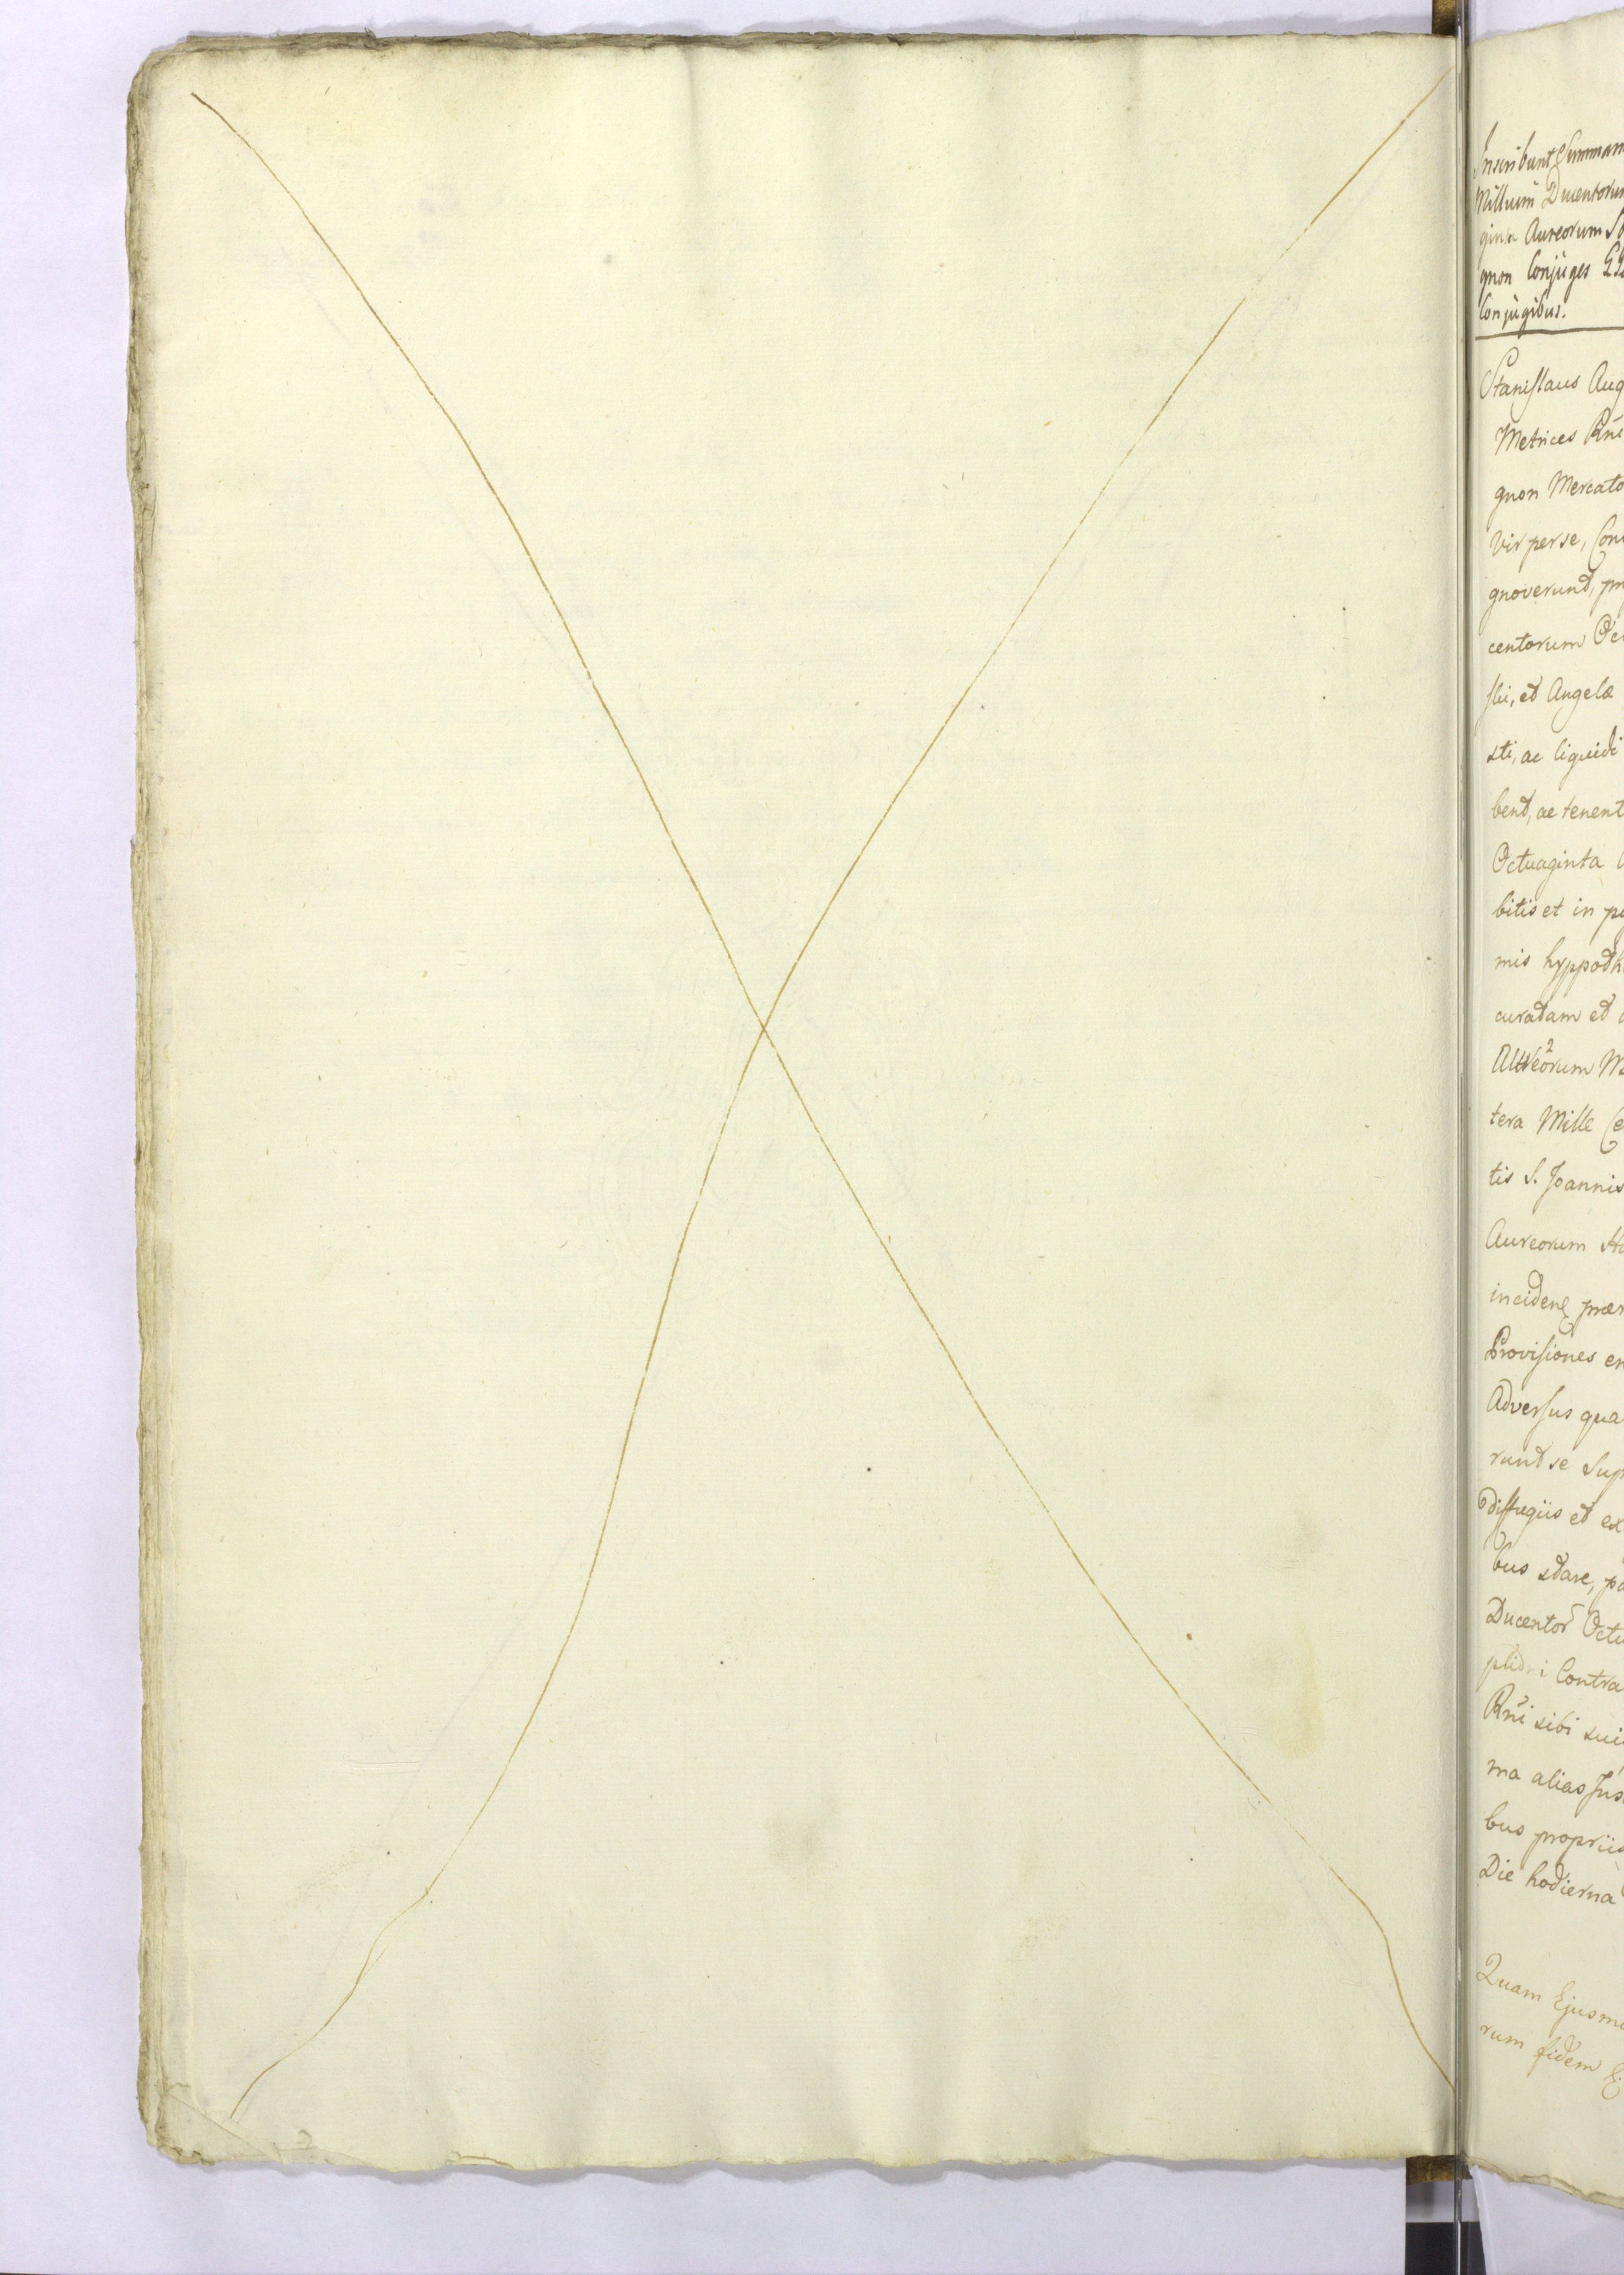 Inscribunt Summam
Millium Ducentorum
ginta Aureorum
gnon Conjuges
Conjugibus.
Stanislaus Aug
Metrices Rni
gnon Mercato
vir per se, Con
gnoverunt, pr
centorum Oc
slii, et Angelæ
sti, ac liquidi
bent, ac tenent
Octuaginta
bitis et in p
mis hyppoth
curatam et
Aureorum
tera Mille Ce
tis S. Joannis
Aureorum
inciden præ
Provisiones en
Adversus qua
runt se Sup
diffugiis et ex
bus stare, pa
Ducentor Octu
plicni Contra
Rni sibi sui
ma alias Jus
bus propriis
Die hodierna
Quam Ejusmo
rum fidem